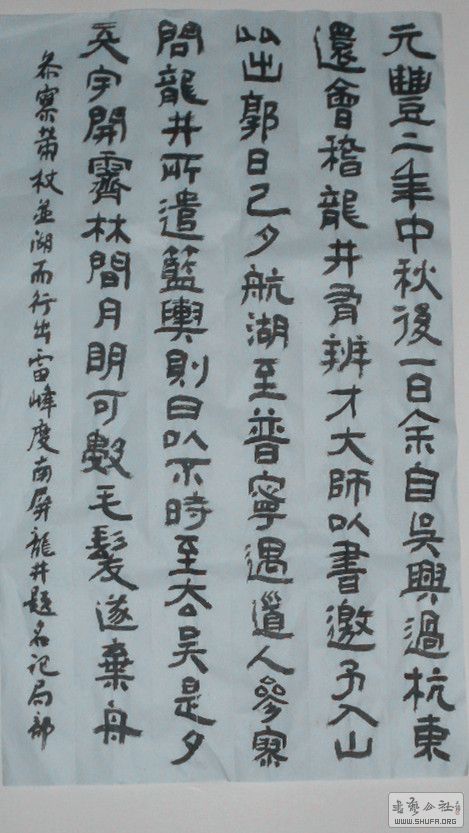 元豐二年中秋後一日余自吳興過杭東
還會稽龍井有辨才大師以書邀予入山
比出郭日已夕航湖至普寧遇道人參寥
問龍井所遣籃輿則曰以不時至去矣是夕
天宇開霽林間月明可數毛髮遂棄舟
參寥策杖並湖而行出雷峰度南屏龍井題名記局部
书艺公社
WWW.SHUFA.ORG